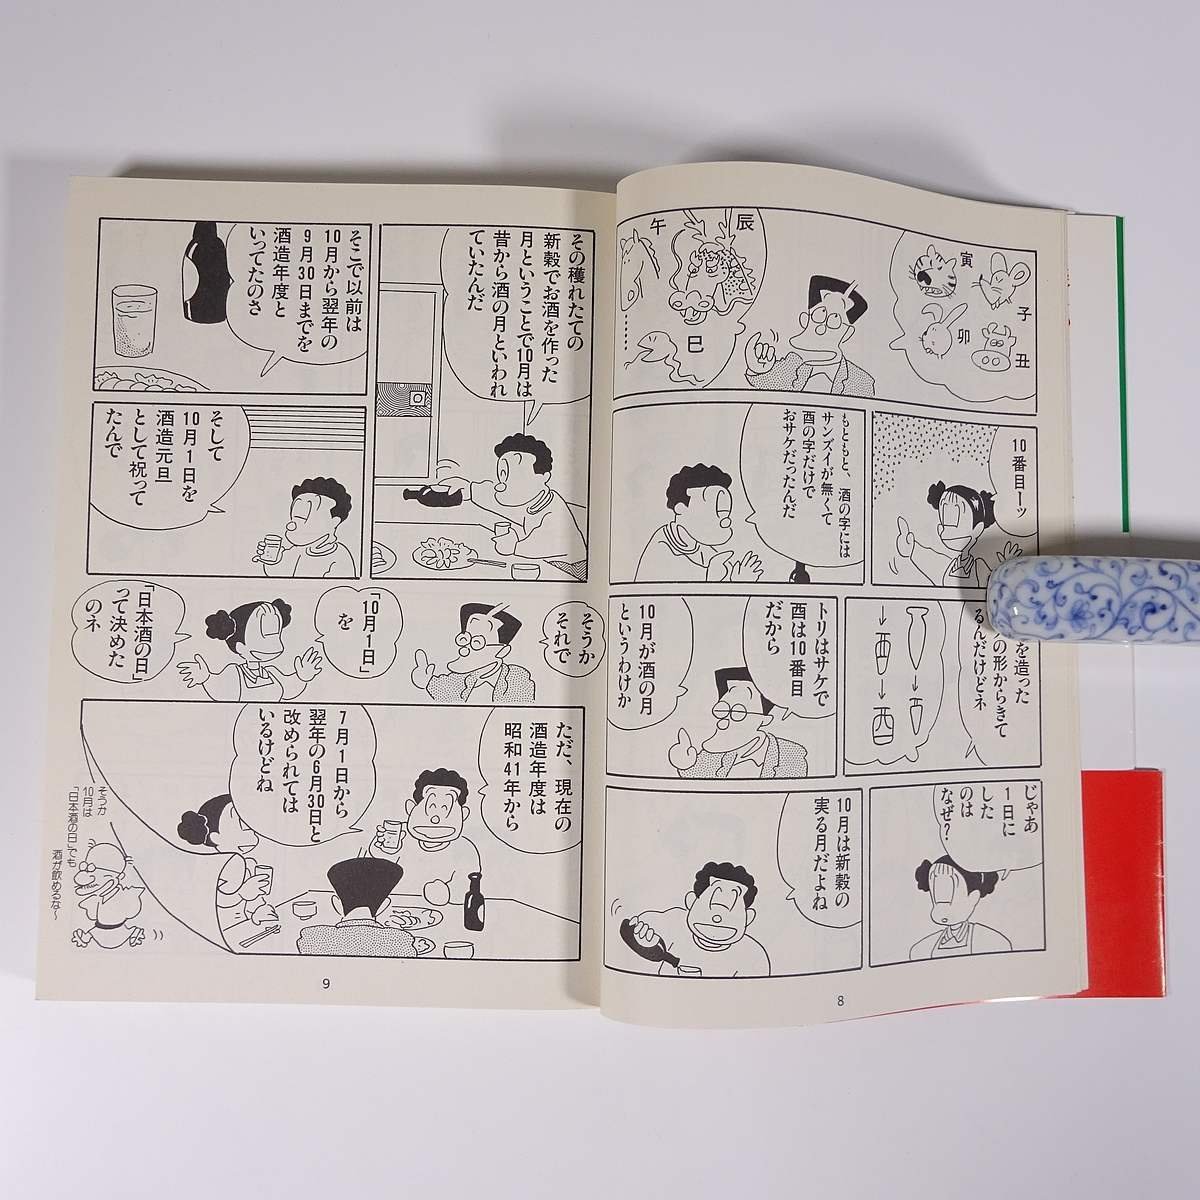 子
丑
寅
卯
辰
巳
午
……
10番目ーッ
もともと、酒の字には
サンズイが無くて
酉の字だけで
おサケだったんだ
を造った
の形からきて
るんだけどネ
酉
トリはサケで
酉は10番目
だから
10月が酒の月
というわけか
じゃあ
1日に
した
のは
なぜ?
10月は新穀の
実る月だよね
8
その穫れたての
新穀でお酒を作った
月ということで10月は
昔から酒の月といわれ
ていたんだ
そこで以前は
10月から翌年の
9月30日までを
酒造年度と
いってたのさ
そして
10月1日を
酒造元旦
として祝って
たんで
そうか
それで
「10月1日」
を
「日本酒の日」
って決めた
のネ
ただ、現在の
酒造年度は
昭和41年から
7月1日から
翌年の6月30日と
改められては
いるけどね
そうか
10月は
「日本酒の日」でも
酒が飲めるな〜
9